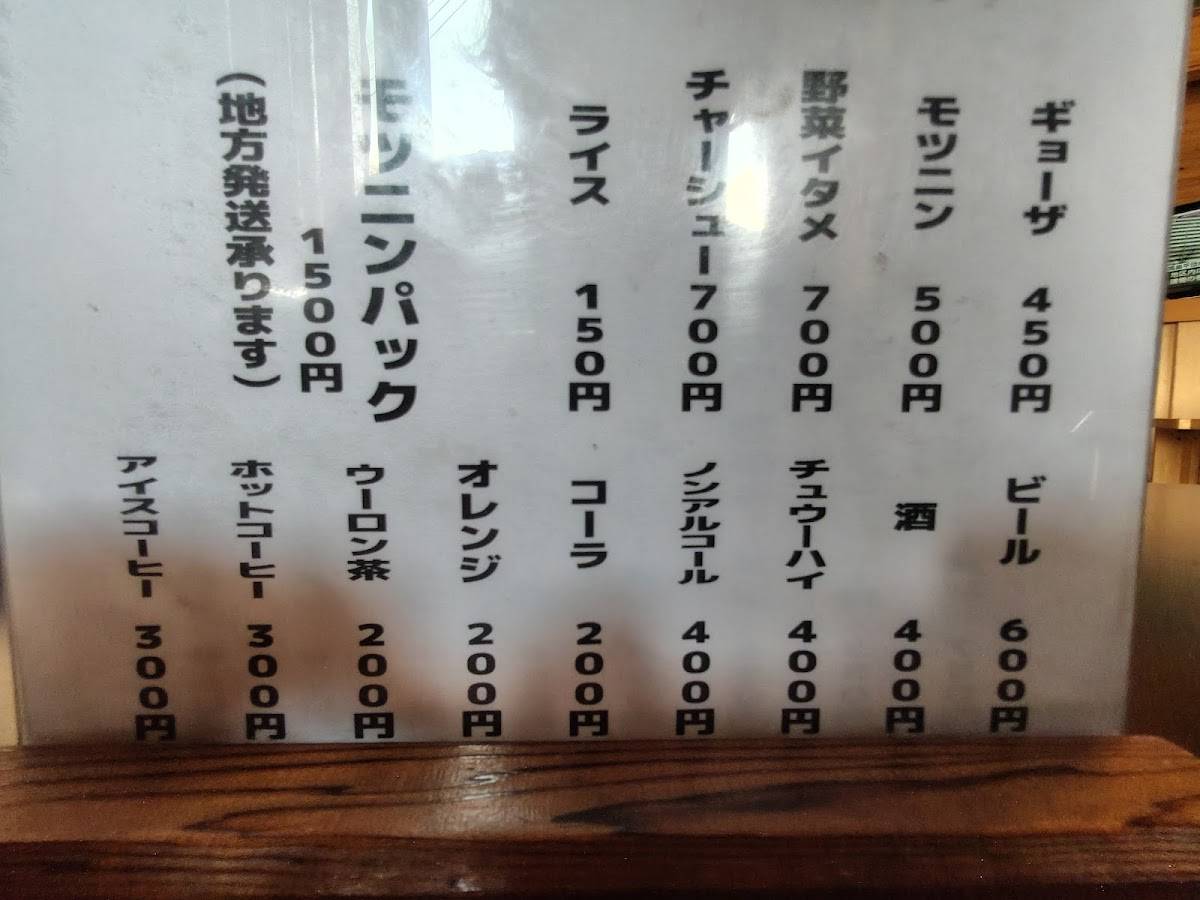 ギョーザ 450円
モツニン 500円
野菜イタメ 700円
チャーシュー 700円
ライス 150円
モツニンパック
1500円
(地方発送承ります)
ビール 600円
酒 400円
チュウーハイ 400円
ノンアルコール 400円
コーラ 200円
オレンジ 200円
ウーロン茶 200円
ホットコーヒー 300円
アイスコーヒー 300円